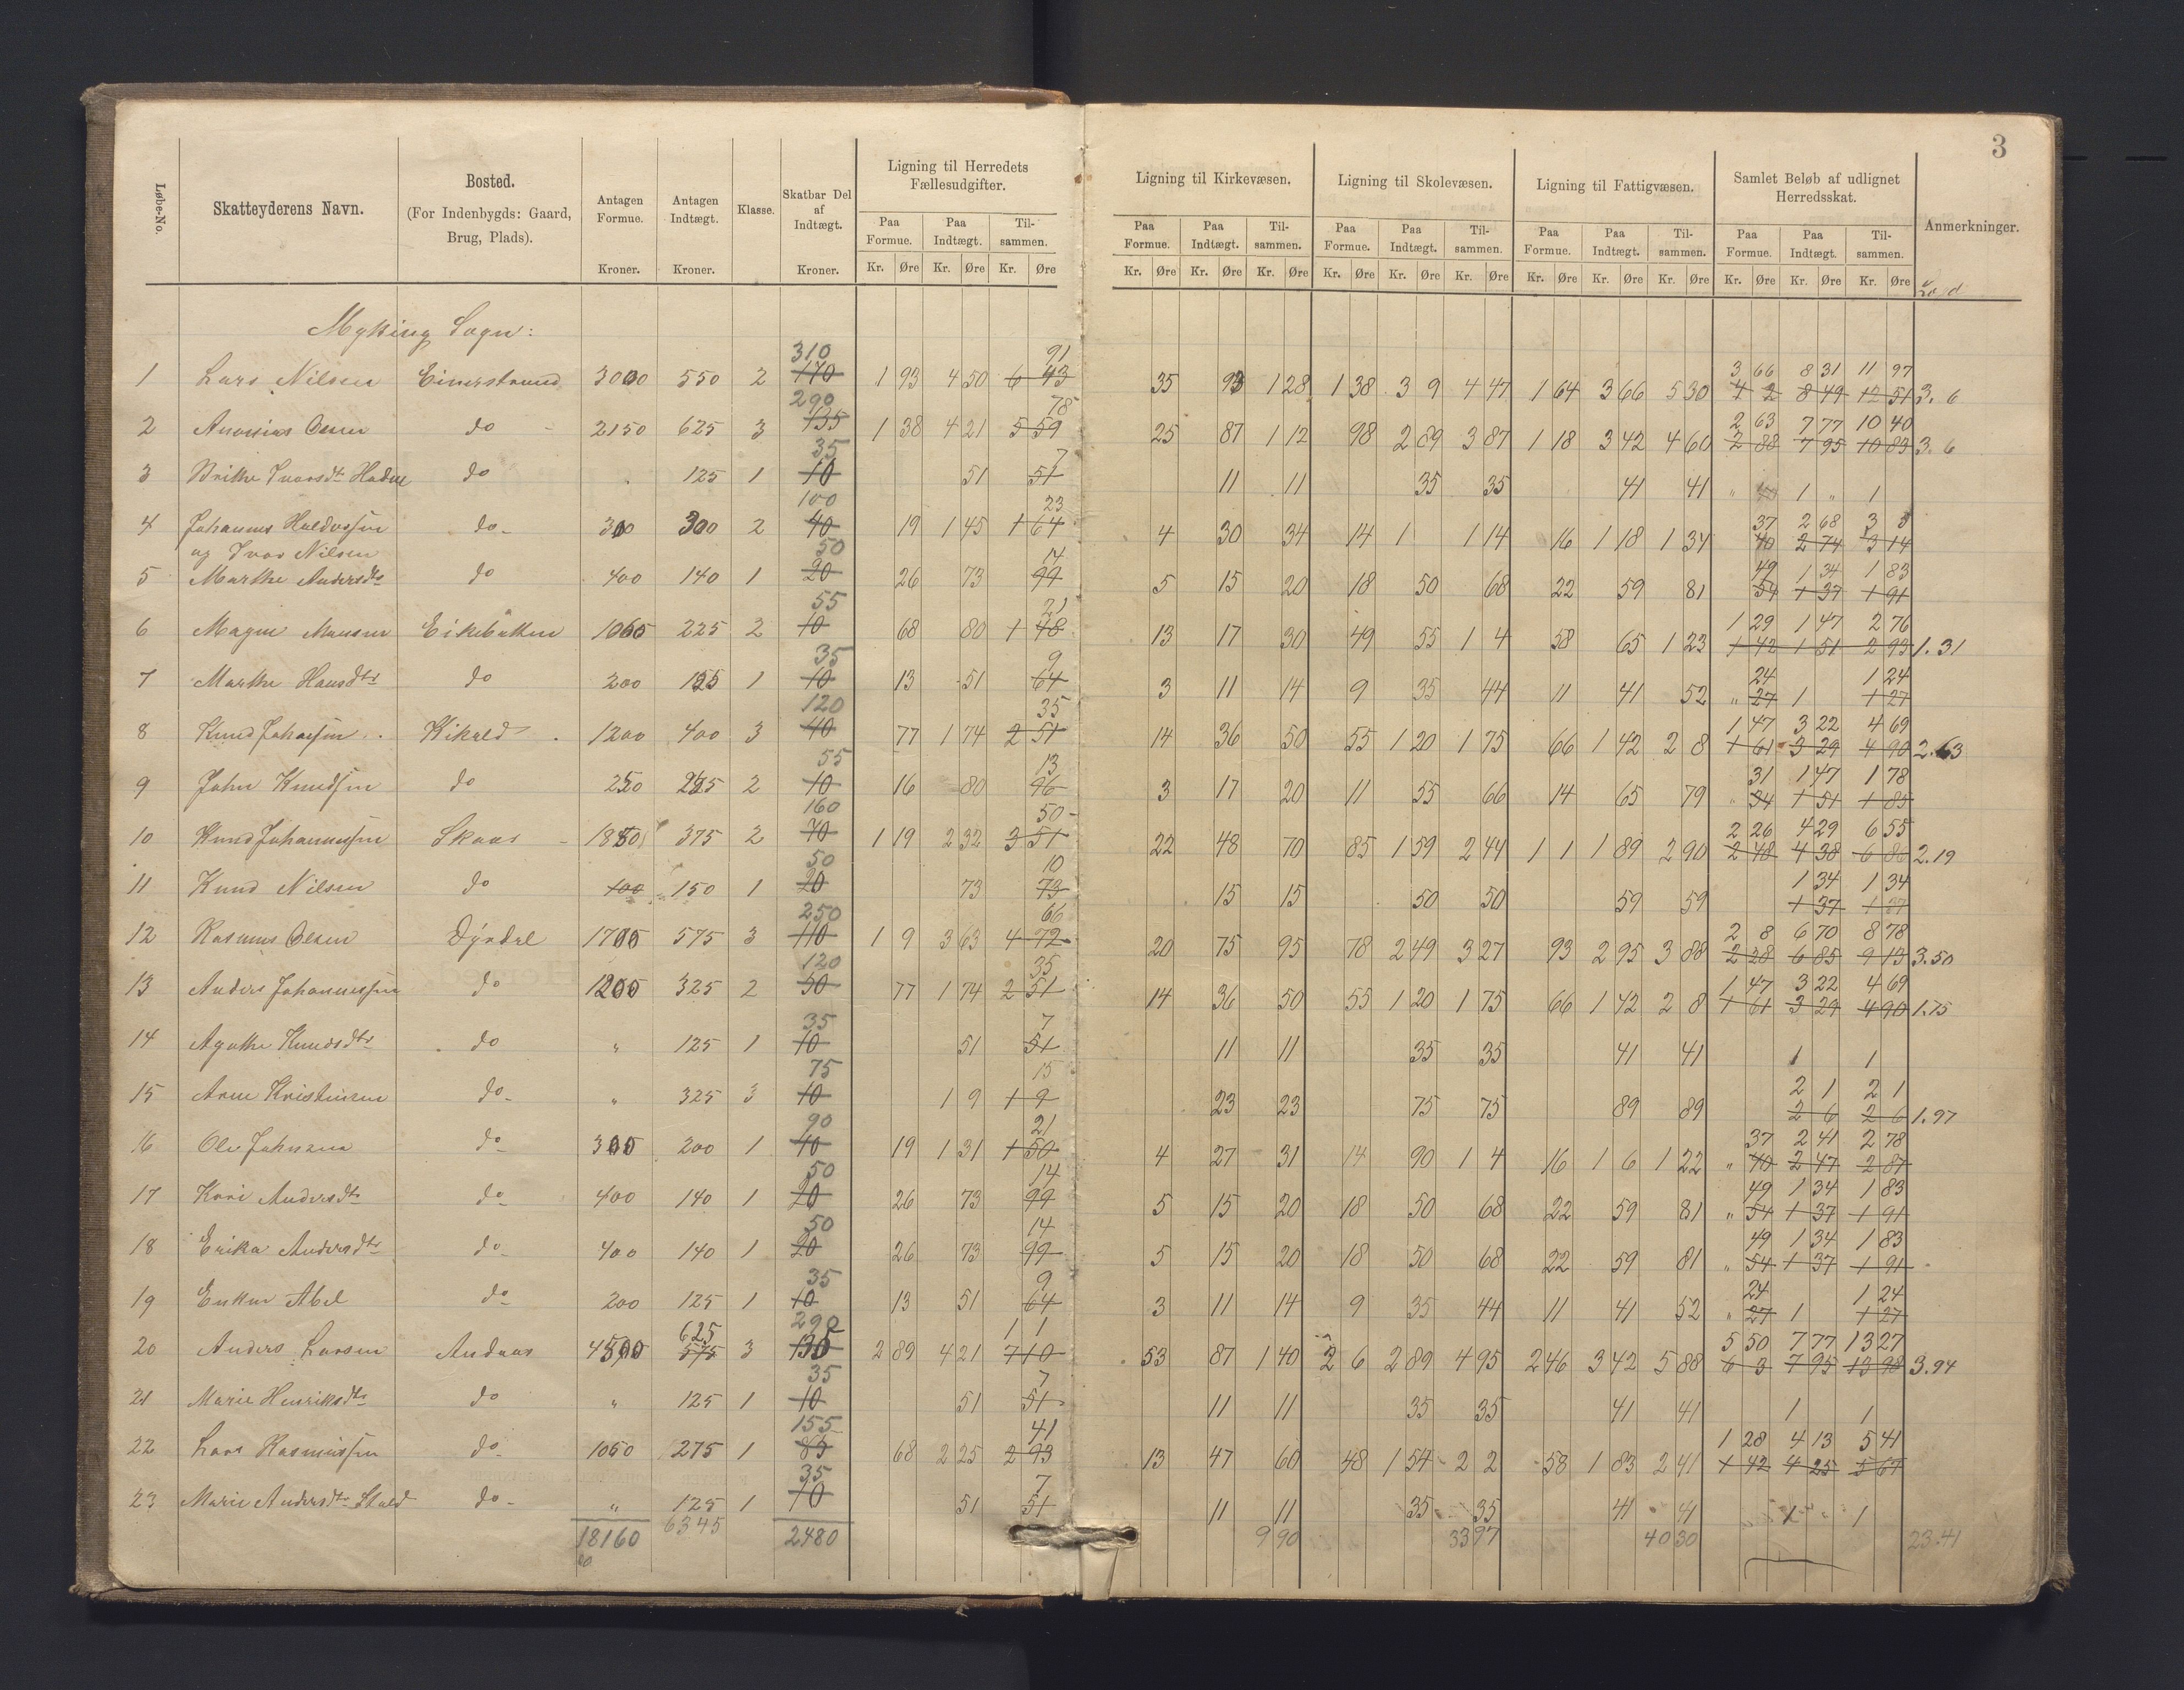 3
Løbe-No. Skatteyderens Navn. Bosted. (For Indenbygds: Gaard, Brug, Plads). Antagen Formue. Kroner. Antagen Indtægt. Kroner. Klasse. Skatbar Del af Indtægt. Kroner. Ligning til Herredets Fællesudgifter. Ligning til Kirkevæsen. Ligning til Skolevæsen. Ligning til Fattigvæsen. Samlet Beløb af udlignet Herredsskat. Anmerkninger.
Paa Formue. Paa Indtægt. Til-sammen. Paa Formue. Paa Indtægt. Til-sammen. Paa Formue. Paa Indtægt. Til-sammen. Paa Formue. Paa Indtægt. Til-sammen. Paa Formue. Paa Indtægt. Til-sammen.
Kr. Øre Kr. Øre Kr. Øre Kr. Øre Kr. Øre Kr. Øre Kr. Øre Kr. Øre Kr. Øre Kr. Øre Kr. Øre Kr. Øre Kr. Øre Kr. Øre Kr. Øre
Sogn:
310 91 3 66 8 31 11 97
1 Lars Nilsen 3000 550 2 170 1 93 4 50 6 43 35 93 1 28 1 38 3 9 4 47 1 64 3 66 5 30 4 2 8 49 12 51 3. 6
290 78 2 63 7 77 10 40
2 do 2150 625 3 135 1 38 4 21 5 59 25 87 1 12 98 2 89 3 87 1 18 3 42 4 60 2 88 7 95 10 83 3. 6
35 7
3 do 125 1 10 51 51 11 11 35 35 41 41 " 1 " 1
100 23 37 2 68 3 3
4 Johannes do 300 300 2 40 19 1 45 1 64 4 30 34 14 1 1 14 16 1 18 1 34 40 2 74 3 14
og Ivar Nilsen
50 14 49 1 34 1 83
5 Marthe Andersdtr do 400 140 1 20 26 73 99 5 15 20 18 50 68 22 59 81 54 1 37 1 91
55 21 1 29 1 47 2 76
6 1065 225 2 10 68 80 1 48 13 17 30 49 55 1 4 58 65 1 23 1 42 1 51 2 93 1. 31
35 9 24 1 24
7 Marthe Hansdtr do 200 125 1 10 13 51 64 3 11 14 9 35 44 11 41 52 " 27 1 1 27
120 35 1 47 3 22 4 69
8 1200 400 3 40 77 1 74 2 51 14 36 50 55 1 20 1 75 66 1 42 2 8 1 61 3 29 4 90 2.63
55 13 31 1 47 1 78
9 John Knudsen do 250 225 2 10 16 80 96 3 17 20 11 55 66 14 65 79 34 1 51 1 85
160 50 2 26 4 29 6 55
10 Knud Johannessen Skaar 1850 375 2 70 1 19 2 32 3 51 22 48 70 85 1 59 2 44 1 1 1 89 2 90 2 48 4 38 6 86 2.19
50 10 1 34 1 34
11 Knud Nilsen do 100 150 1 20 73 73 15 15 50 50 59 59 1 37 1 37
250 66 2 8 6 70 8 78
12 Rasmus Olsen Dyrdal 1705 575 3 110 1 9 3 63 4 72 20 75 95 78 2 49 3 27 93 2 95 3 88 2 28 6 85 9 13 3.50
120 35 1 47 3 22 4 69
13 Anders Johannessen do 1200 325 2 50 77 1 74 2 51 14 36 50 55 1 20 1 75 66 1 42 2 8 1 61 3 29 4 90 1.75
35 7
14 Agathe Knudsdtr do " 125 1 10 51 51 11 11 35 35 41 41 1 1
75 15 2 1 2 1
15 Arne Kristensen do " 325 3 10 1 9 1 9 23 23 75 75 89 89 2 6 2 6 1.97
90 21 37 2 41 2 78
16 Ole Johnsen do 300 200 1 40 19 1 31 1 50 4 27 31 14 90 1 4 16 1 6 1 22 " 40 2 47 2 87
50 14 49 1 34 1 83
17 Kari Andersdtr do 400 140 1 20 26 73 99 5 15 20 18 50 68 22 59 81 " 54 1 37 1 91
50 14 49 1 34 1 83
18 Erika Andersdtr do 400 140 1 20 26 73 99 5 15 20 18 50 68 22 59 81 " 54 1 37 1 91
35 9 24 1 24
19 Enken Abel do 200 125 1 10 13 51 64 3 11 14 9 35 44 11 41 52 " 27 1 1 27
625 290 1 1 5 50 7 77 13 27
20 Anders Larsen Andaas 4500 575 3 135 2 89 4 21 7 10 53 87 1 40 2 6 2 89 4 95 2 46 3 42 5 88 6 3 7 95 13 98 3.94
35 7
21 Marie Henriksdtr do " 125 1 10 51 51 11 11 35 35 41 41 1 1
155 41 1 28 4 13 5 41
22 Lars Rasmussen do 1050 275 1 85 68 2 25 2 93 13 47 60 48 1 54 2 2 58 1 83 2 41 1 42 4 25 5 67
35 7
23 Marie Andersdtr do " 125 1 10 51 51 11 11 35 35 41 41 1 1
18160 6345 2480 9 90 33 97 40 30 23.41